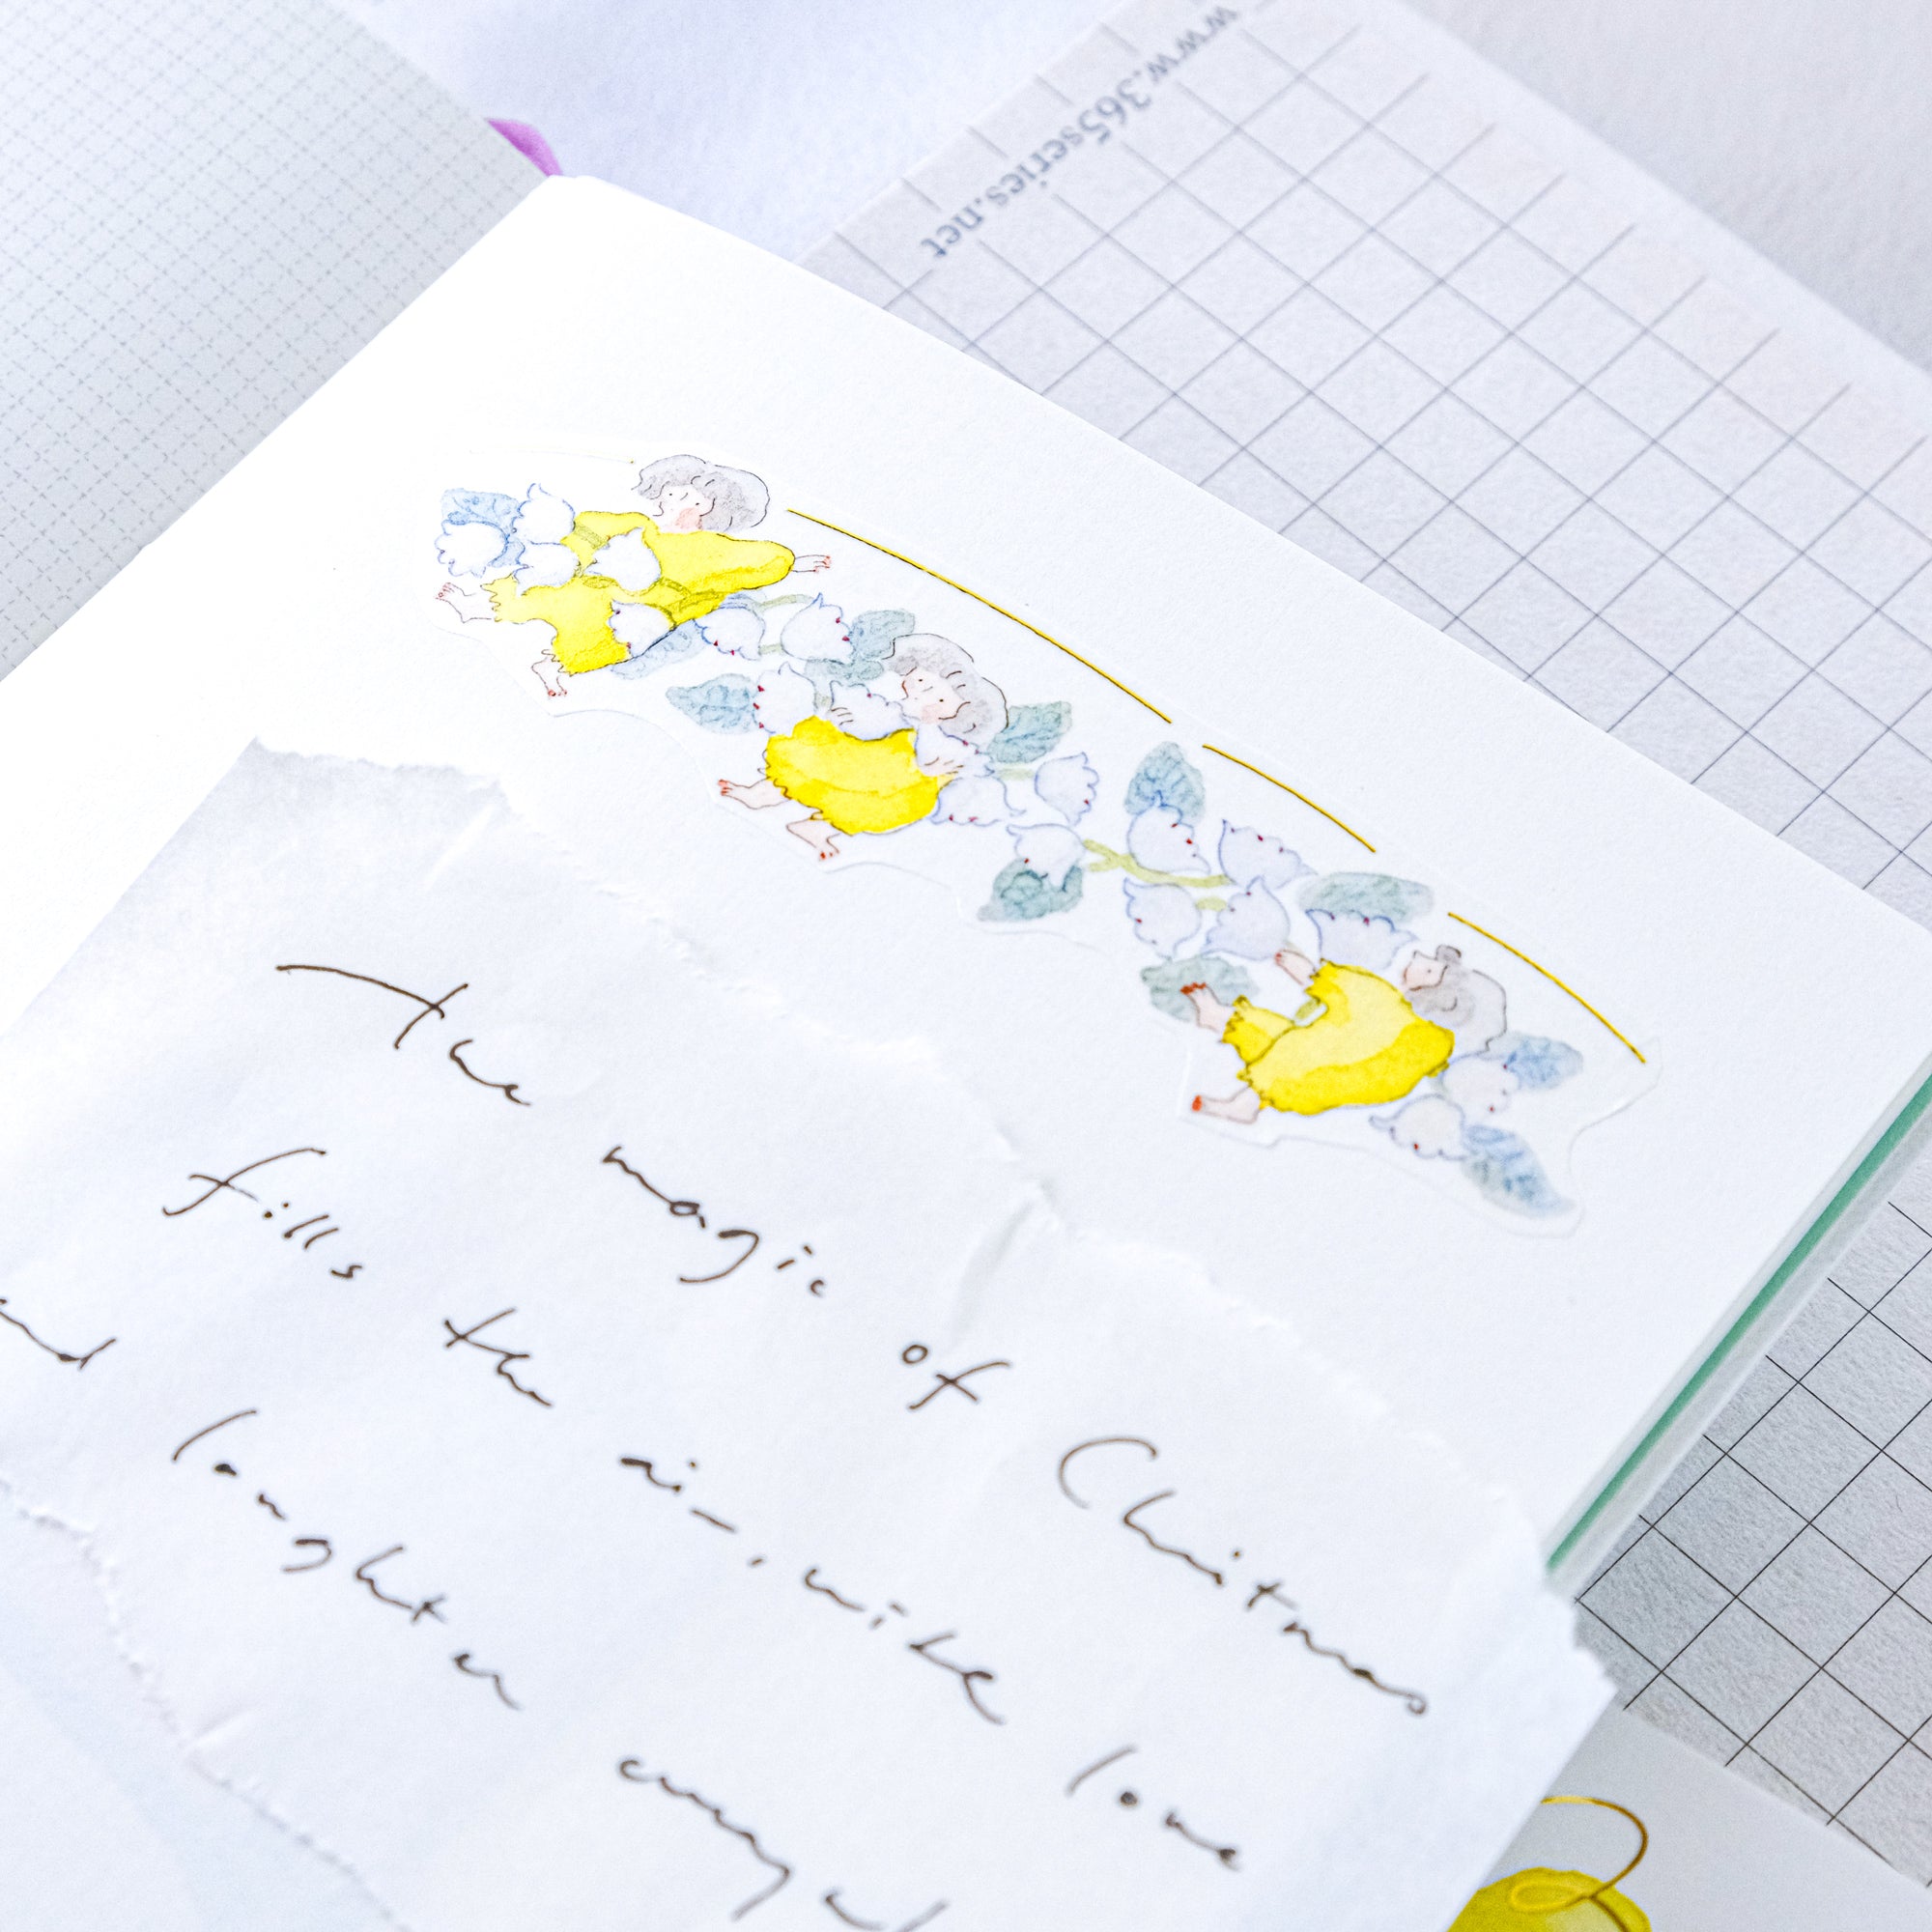 www.365series.net
The magic of Christmas
fills the air, with love
and laughter